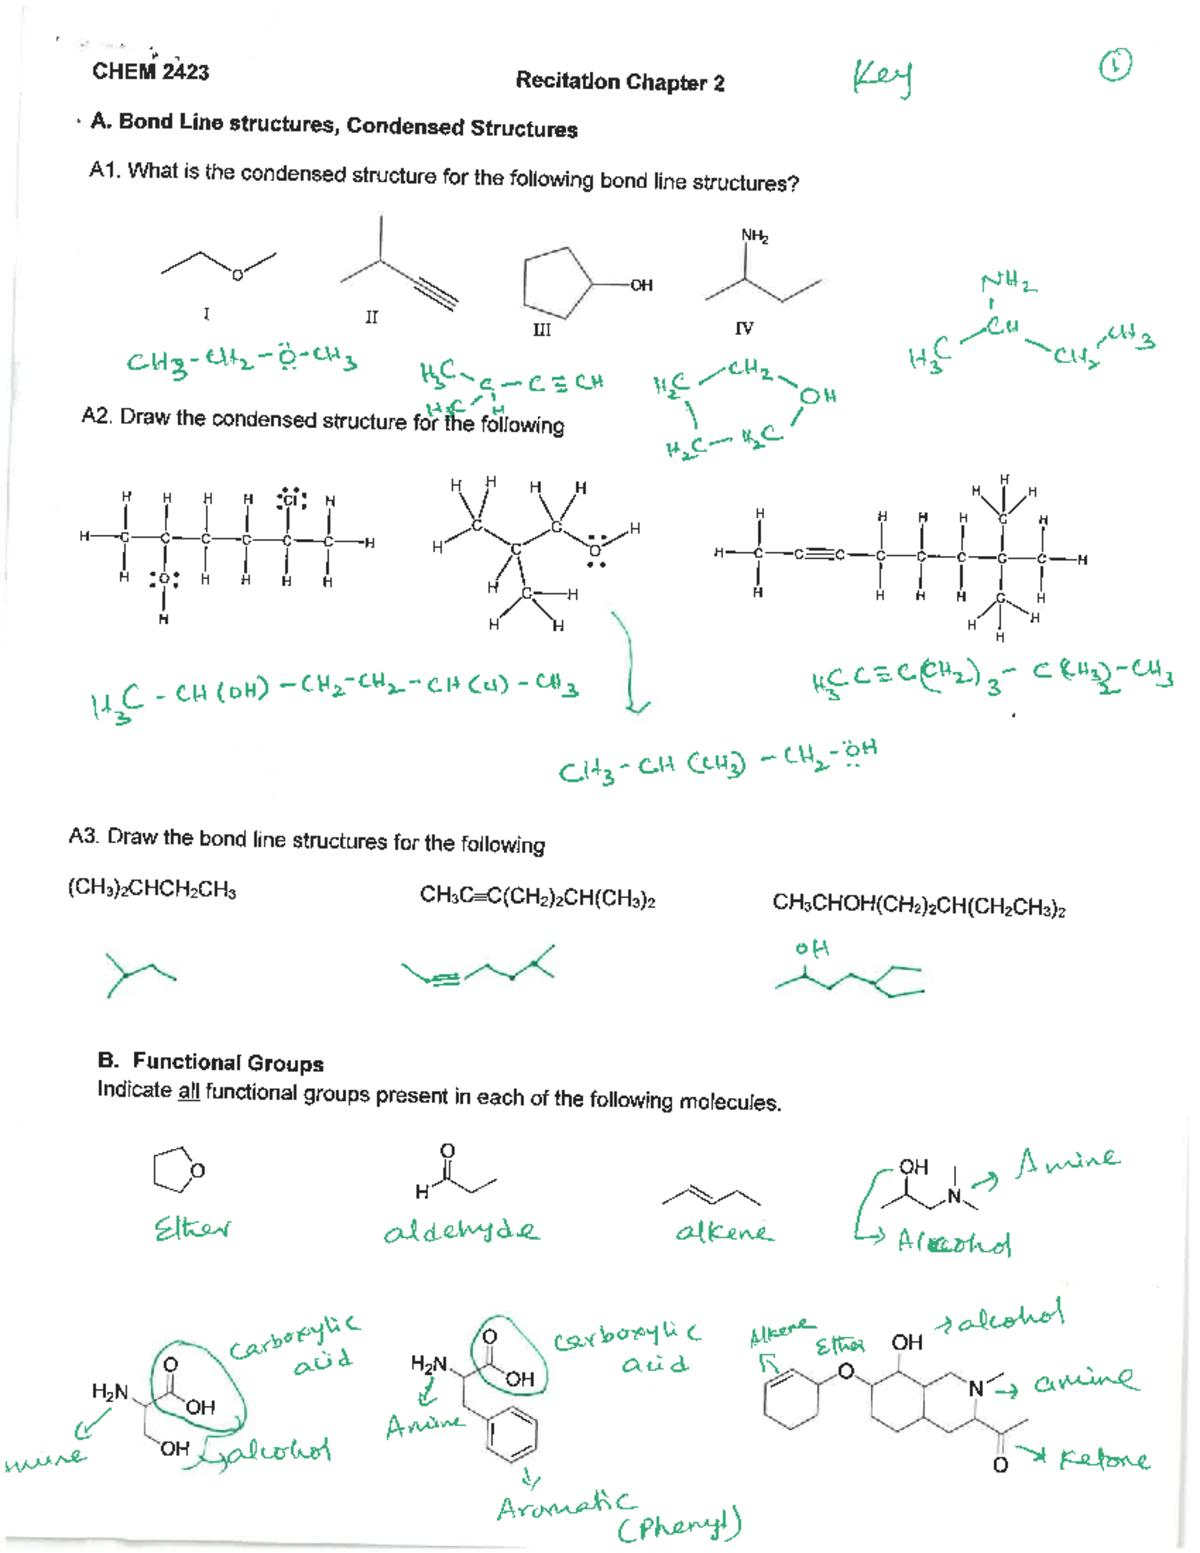 CHEM 2423
Recitation Chapter 2
Key
1
A. Bond Line structures, Condensed Structures
A1. What is the condensed structure for the following bond line structures?
O
OH
NH2
I
II
III
IV
CH3-CH2-Ö-CH3
H3C
C-C≡CH
H3C H
CH2
H2C
OH
H2C-H2C
NH2
CH
H3C
CH2
CH3
A2. Draw the condensed structure for the following
H H H H :Cl: H
H-C-C-C-C-C-C-H
H :O: H H H H
H
H H H H
C C H
H C O
H C-H
H H
H
H H
H H H H C H
H-C-C≡C-C-C-C-C-C-H
H H H H C H
H H
H
H3C-CH(OH)-CH2-CH2-CH(Cl)-CH3
H3CC≡C(CH2)3-C(CH3)2-CH3
CH3-CH(CH3)-CH2-ÖH
A3. Draw the bond line structures for the following
(CH3)2CHCH2CH3
CH3C≡C(CH2)2CH(CH3)2
CH3CHOH(CH2)2CH(CH2CH3)2
OH
B. Functional Groups
Indicate all functional groups present in each of the following molecules.
O
Ether
O
H
aldehyde
alkene
OH
N
Amine
Alcohol
Carboxylic
acid
O
H2N
OH
OH
alcohol
carboxylic
acid
O
H2N
OH
Amine
Aromatic
(Phenyl)
Alkene
Ether
OH
alcohol
O
N
amine
O
Ketone